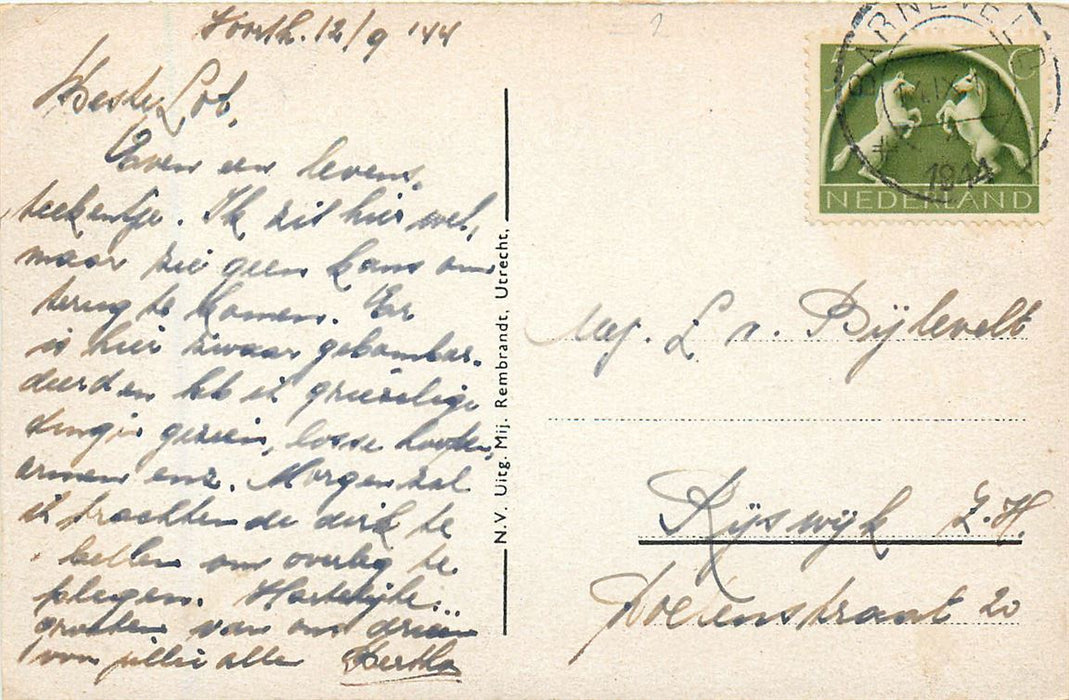 Voorth. 12/9 '44
Beste Lob,
Even een levens,
teekentje. Ik zit hier wel,
maar zie geen kans om
terug te komen. Er
is hier zwaar gebombar-
deerd en heb ik griezelige
dingen gezien, losse hoofden,
armen enz. Morgen zal
ik trachten de dirk te
bellen om overleg te
plegen. Hartelijke
groeten van ons drieën
voor jullie alle Bertha
N.V. Uitg. Mij. Rembrandt, Utrecht.
BARNEVELD
IX
1944
5 C
NEDERLAND
Mej. L v. Bijlevelt
Rijswijk Z.H.
Doelenstraat 20